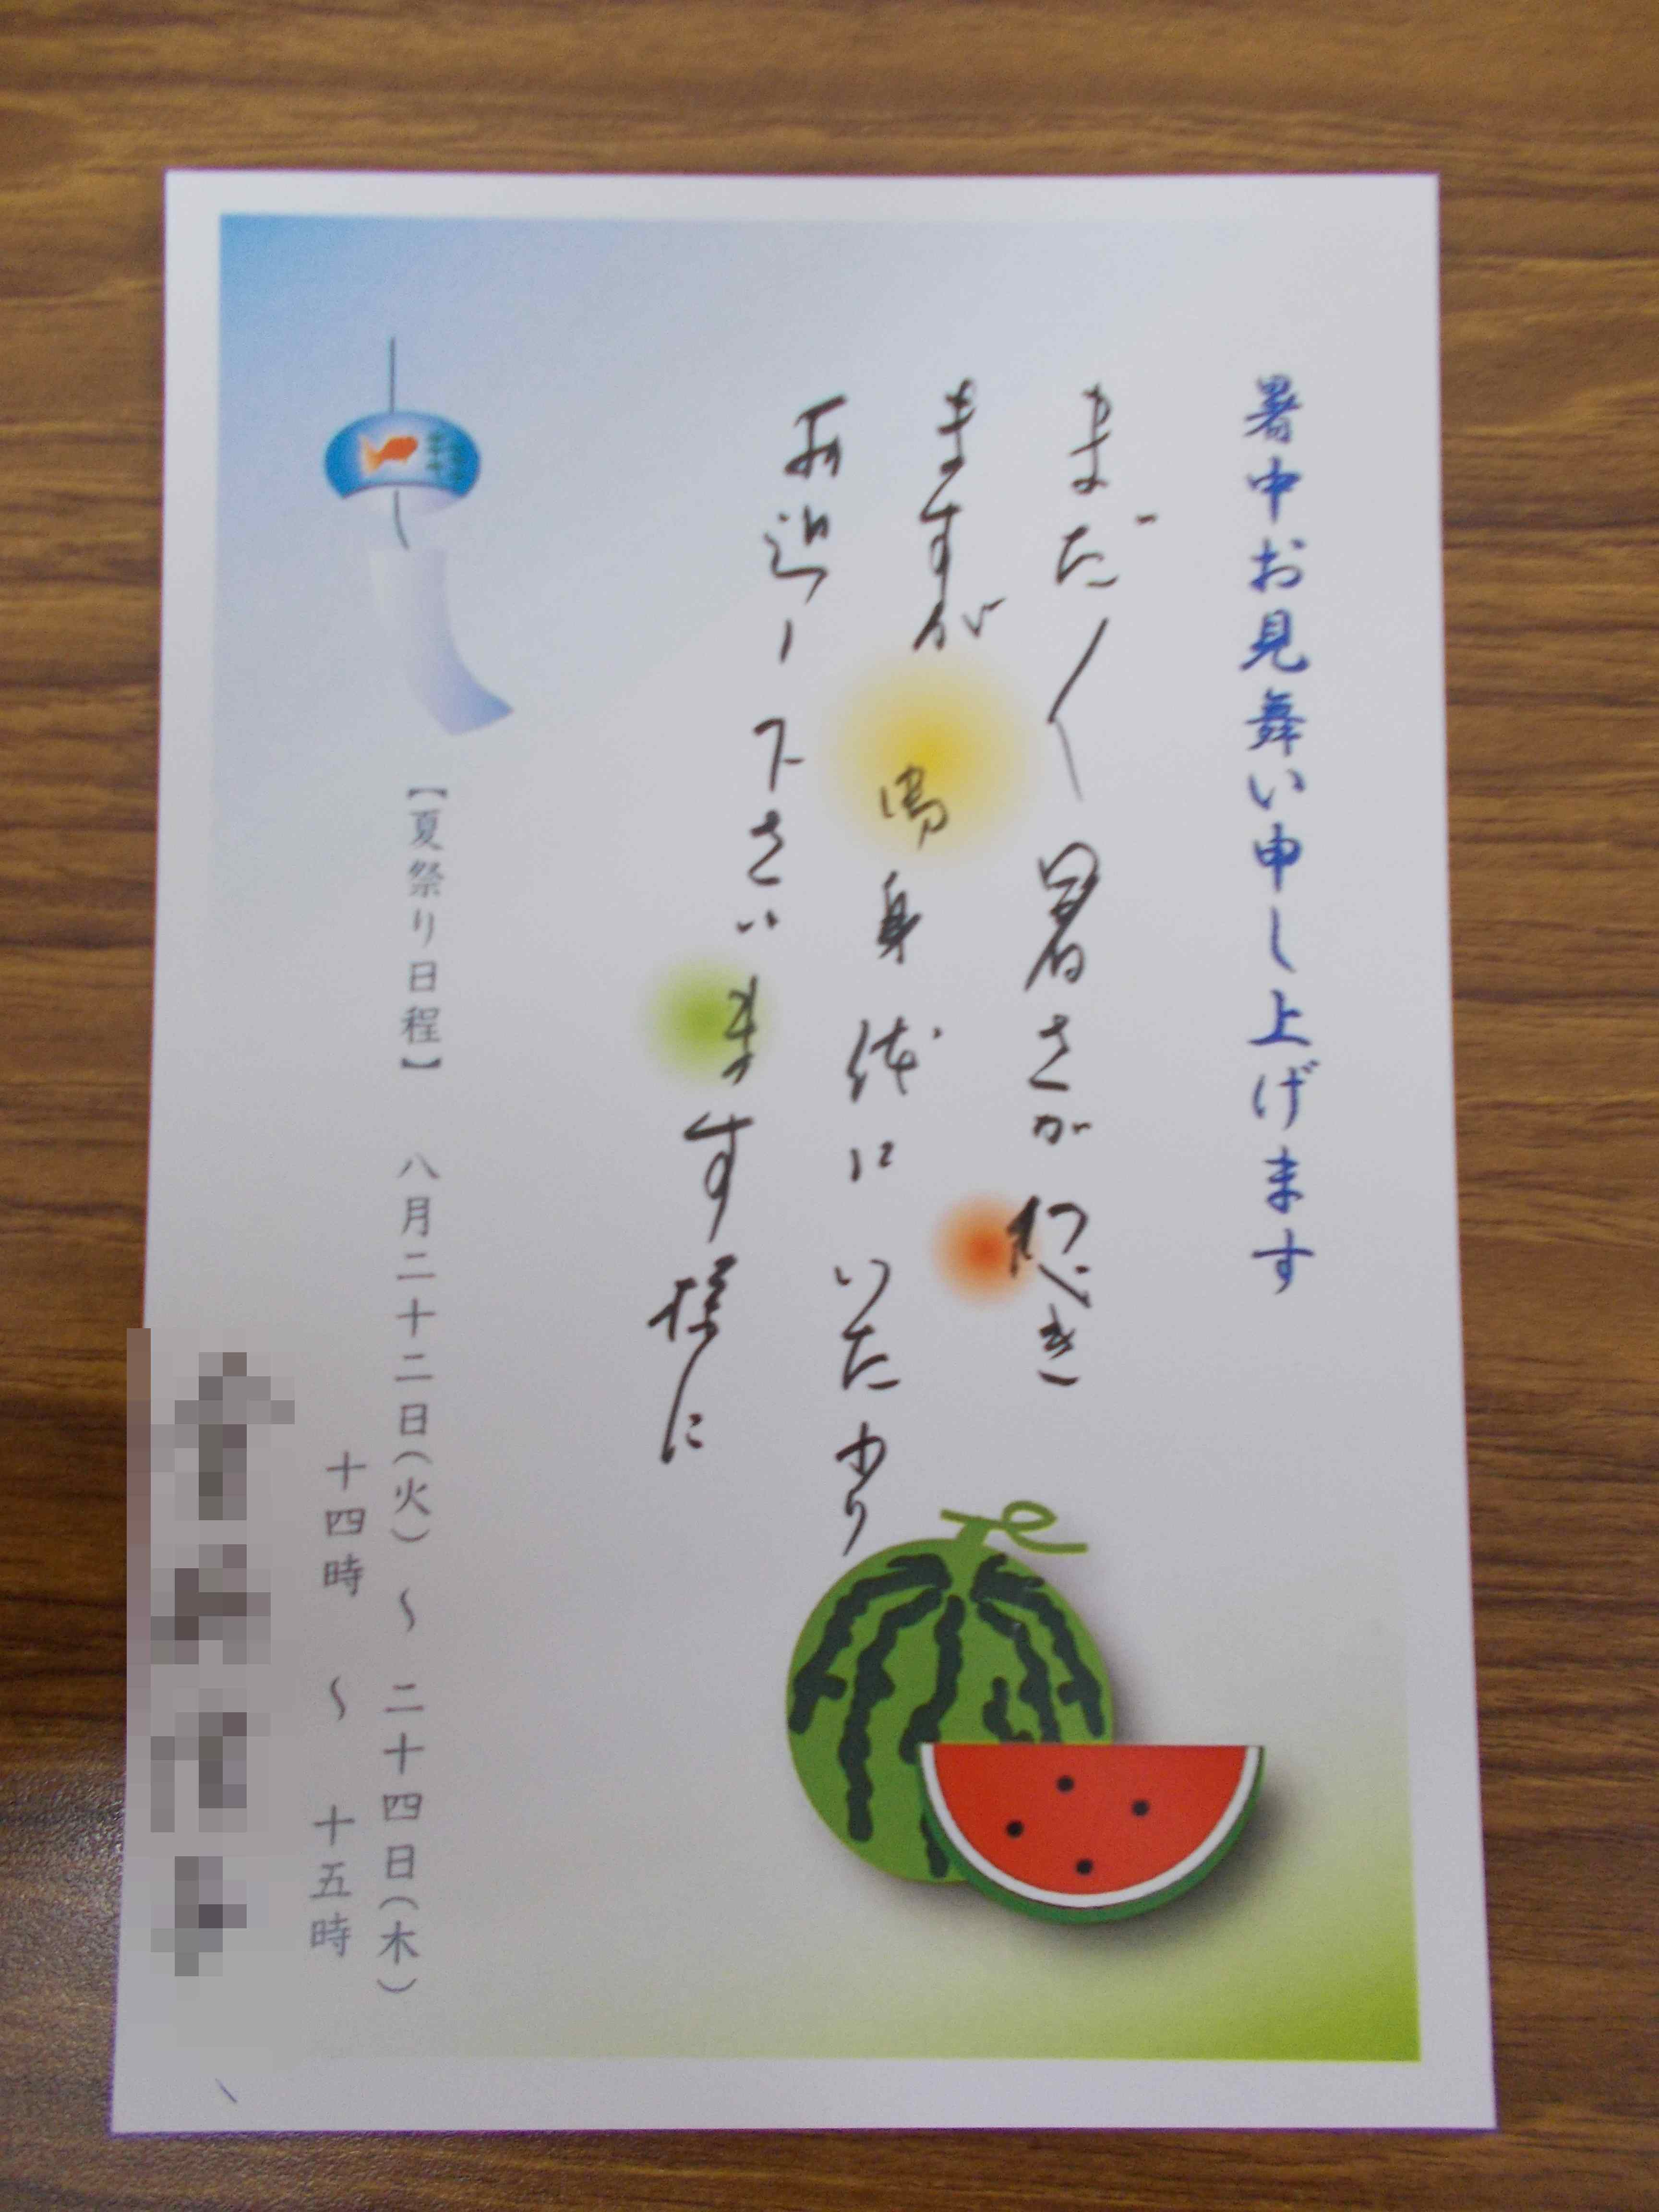 暑中お見舞い申し上げます
まだ〱暑さが続き
ますが御身体にいたわり
お過し下さいます様に
【夏祭り日程】 八月二十二日(火) ～ 二十四日(木)
十四時 ～ 十五時